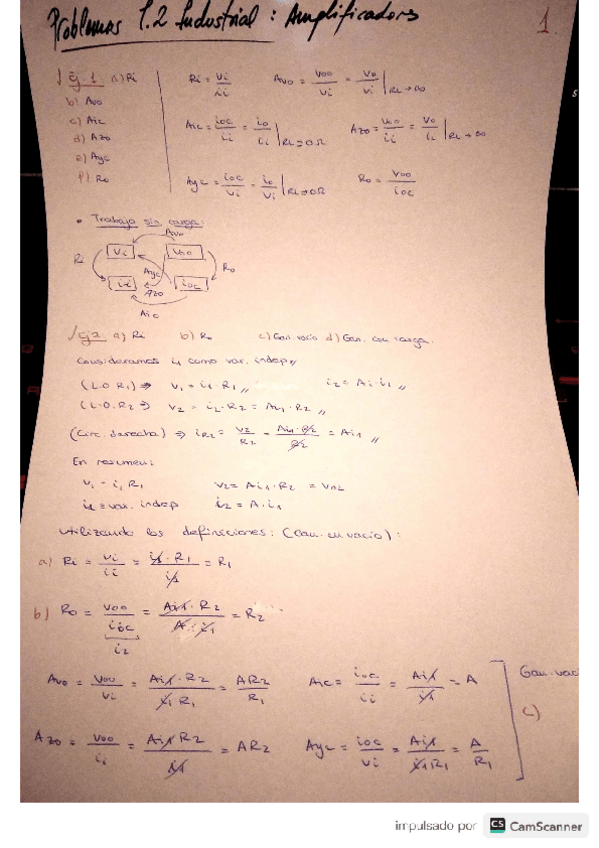 Problemas 1.2 Industrial : Amplificadores
1
Ej. 1 a) Ri
b) Avo
c) Aic
d) Azo
e) Ayc
f) Ro
Ri = vi/ii Avo = voo/vi = vo/vi | RL→∞
Aic = ioc/ii = io/ii | RL=0Ω Azo = voo/ii = vo/ii | RL→∞
Ayc = ioc/vi = io/vi | RL=0Ω Ro = voo/ioc
• Trabajo sin carga:
Avo
vi voo
Ri Ayc Ro
ii Azo ioc
Ej2 a) Ri b) Ro c) Gan. vacio d) Gan. con carga.
Consideramos i1 como var. indep
(L.O.R1) ⇒ v1 = i1·R1 i2 = A·i1
(L.O.R2 ⇒ v2 = i2·R2 = Ai1·R2
(Circ. derecha) ⇒ iR2 = v2/R2 = Ai1·R2/R2 = Ai1
En resumen:
v1 = i1R1 v2 = Ai1·R2 = vR2
i1 = var. indep i2 = A·i1
utilizando las definiciones: (Gan. en vacio):
a) Ri = vi/ii = i1·R1/i1 = R1
b) Ro = voo/ioc = Ai1·R2/A·i1 = R2
i2
Avo = voo/vi = Ai1·R2/i1R1 = AR2/R1 Aic = ioc/ii = Ai1/i1 = A
Gan. vaci
c)
Azo = voo/ii = Ai1R2/i1 = AR2 Ayc = ioc/vi = Ai1/i1R1 = A/R1
impulsado por CS CamScanner